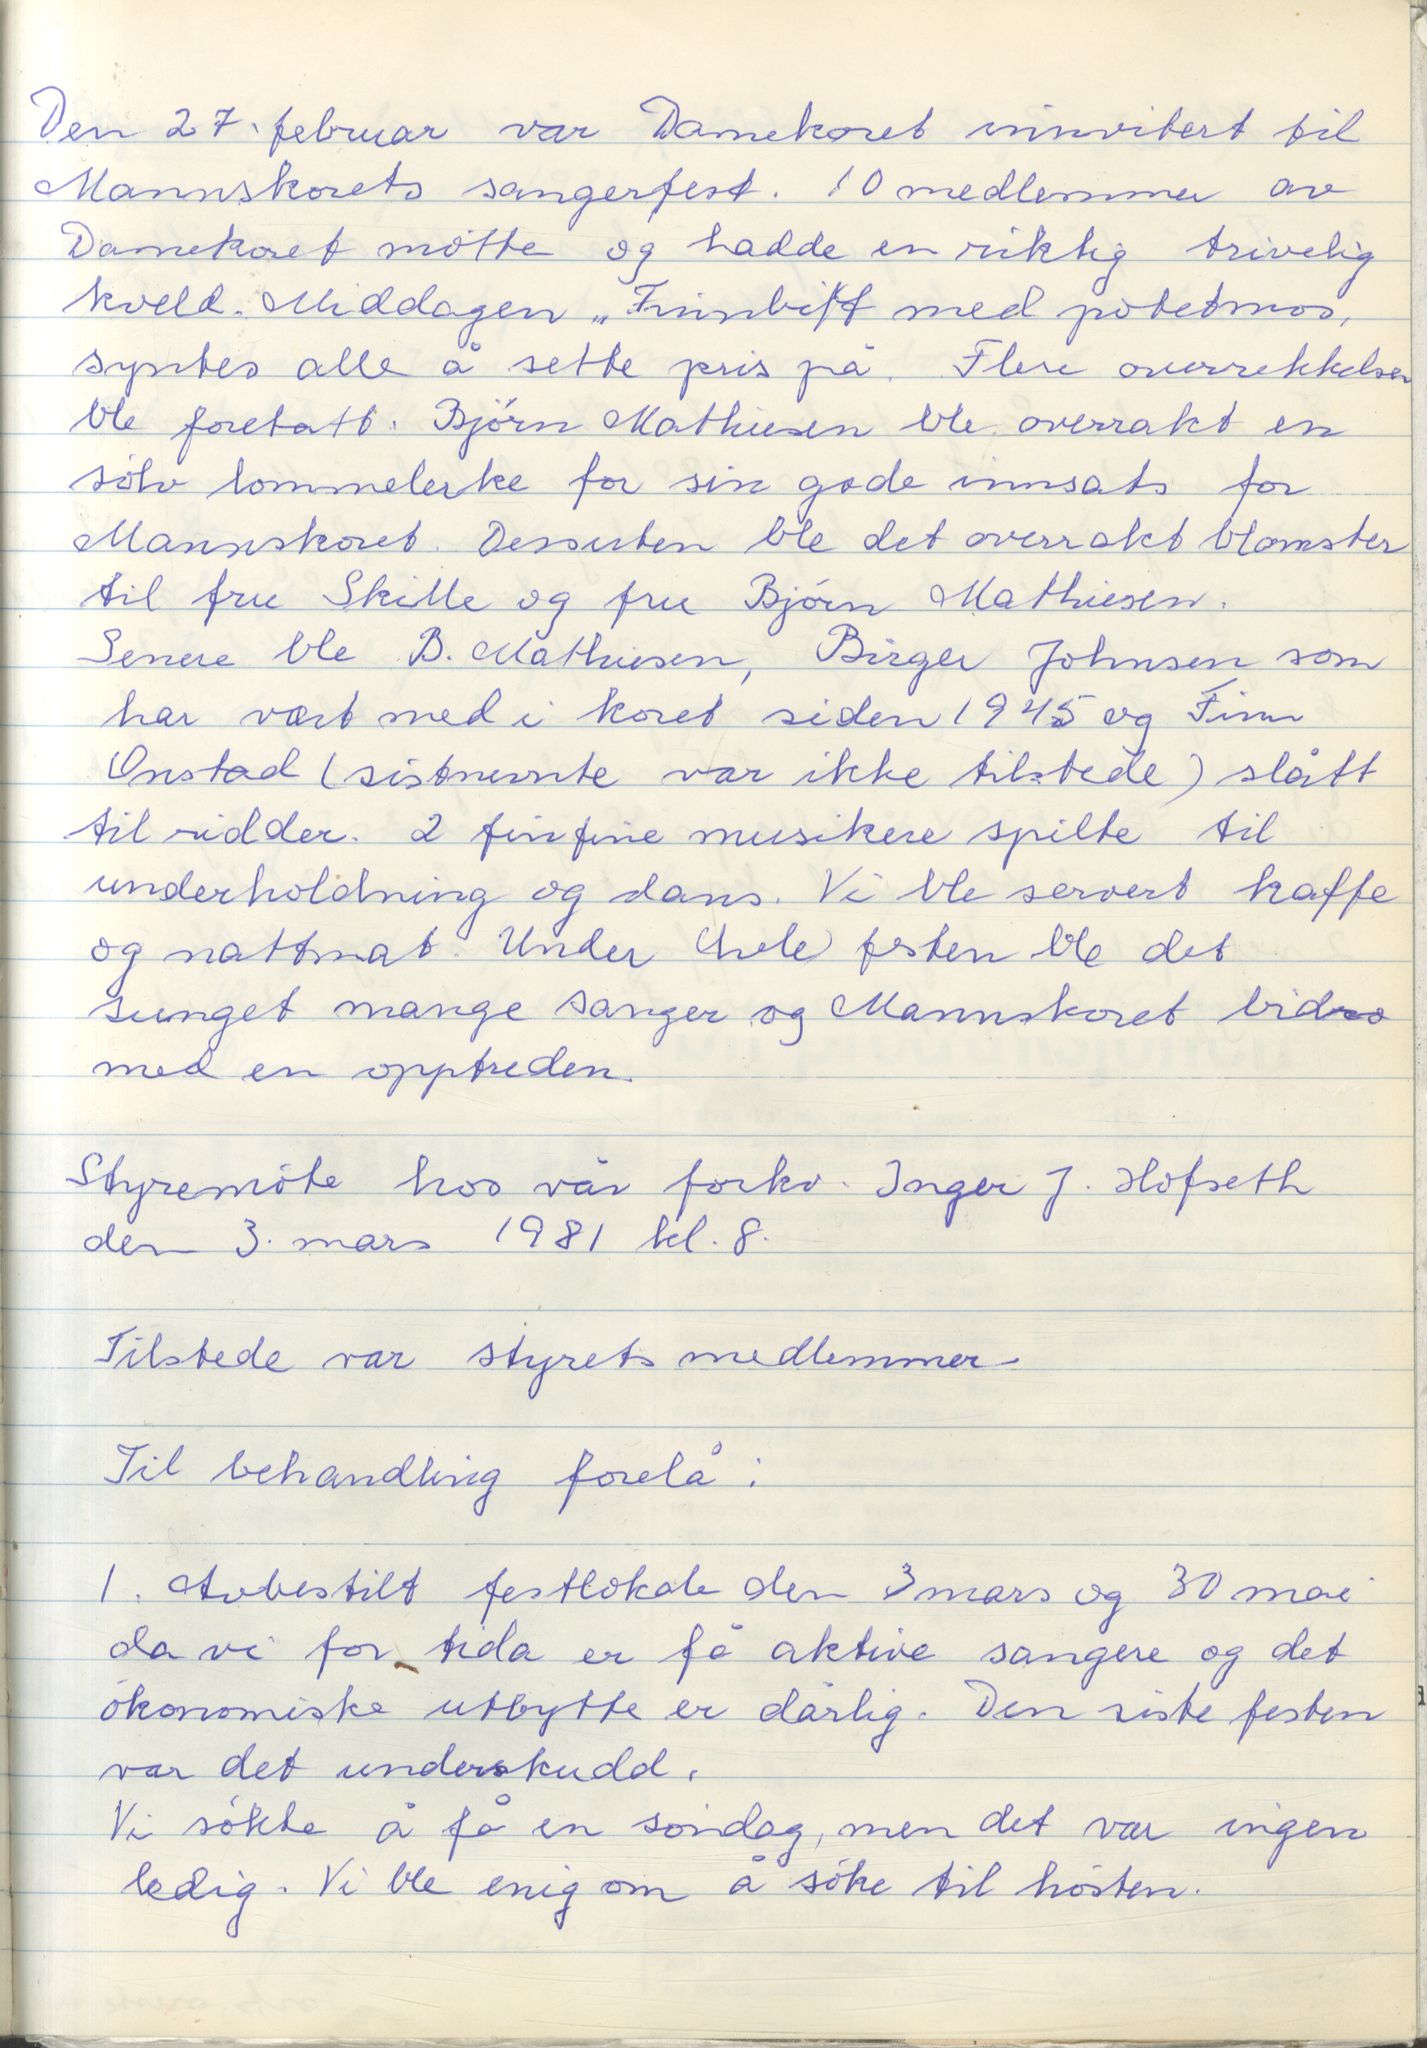 Den 27. februar var Damekoret innvitert til
Mannskorets sangerfest. 10 medlemmer av
Damekoret møtte og hadde en riktig trivelig
kveld. Middagen „Finnbiff med potetmos,
syntes alle å sette pris på. Flere overrekkelser
ble foretatt. Bjørn Mathiesen ble overrakt en
sølv lommelerke for sin gode innsats for
Mannskoret. Dessuten ble det overrakt blomster
til fru Skille og fru Bjørn Mathiesen.
Senere ble B. Mathiesen, Birger Johnsen som
har vært med i koret siden 1945 og Finn
Onstad (sistnevnte var ikke tilstede) slått
til ridder. 2 finfine musikere spilte til
underholdning og dans. Vi ble servert kaffe
og nattmat. Under (hele) festen ble det
sunget mange sanger og Mannskoret bidro
med en opptreden.
Styremøte hos vår forkv. Inger J. Hofseth
den 3. mars 1981 kl. 8.
Tilstede var styrets medlemmer
Til behandling forelå:
1. Avbestilt festlokale den 3 mars og 30 mai
da vi for tida er få aktive sangere og det
økonomiske utbytte er dårlig. Den siste festen
var det underskudd.
Vi søkte å få en søndag, men det var ingen
ledig. Vi ble enig om å søke til høsten.